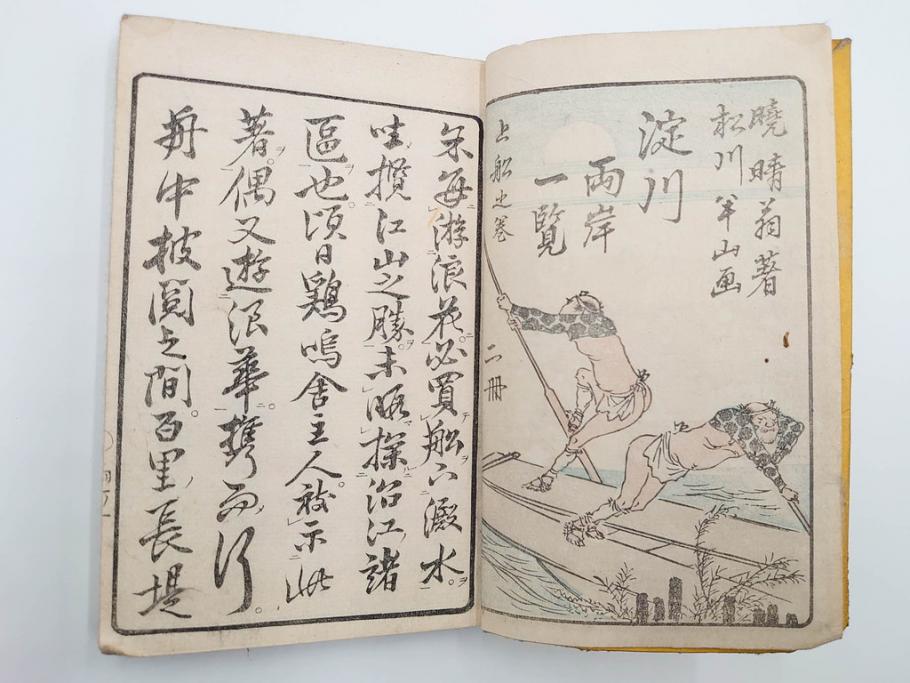 曉晴翁著
松川半山画
淀川
両岸
一覧
上船之巻
二冊
余毎游浪花必買舩下澱水
唯攬江山之勝未暇探沿江諸
區也頃日鷄鳴舎主人被示此
著。偶又遊浪華携而行。
舟中披圖之間。百里長堤